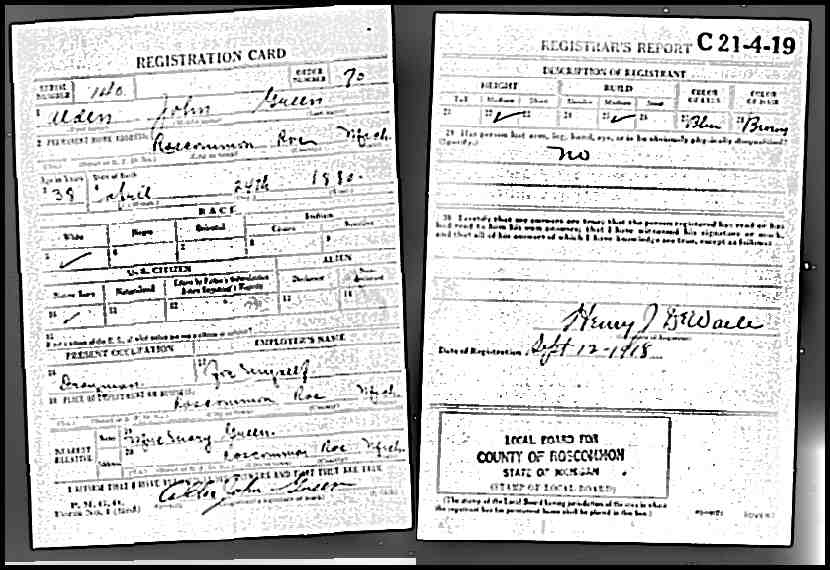 REGISTRATION CARD
SERIAL NUMBER 140 ORDER NUMBER 70
1 Alden John Green
2 PERMANENT HOME ADDRESS:
Roscommon Ros Mich
Age in Years Date of Birth
38 April 24th 1880
RACE
White Negro Oriental Indian
Citizen
5 6 7 8 9
U. S. CITIZEN ALIEN
Native Born Naturalized Citizen by Father's Naturalization Before Registrant's Majority Declarant Non-declarant
10 11 12 13 14
15 If not a citizen of the U. S., of what nation are you a citizen or subject?
PRESENT OCCUPATION EMPLOYER'S NAME
Drayman For Myself
18 PLACE OF EMPLOYMENT OR BUSINESS:
Roscommon Ros Mich
NEAREST RELATIVE
Name Mrs Mary Green
Address Roscommon Ros Mich
I AFFIRM THAT I HAVE VERIFIED ABOVE ANSWERS AND THAT THEY ARE TRUE
John Green
P. M. G. O.
Form No. 1 (Red)
REGISTRAR'S REPORT C 21-4-19
DESCRIPTION OF REGISTRANT
HEIGHT BUILD COLOR OF EYES COLOR OF HAIR
Tall Medium Short Slender Medium Stout
21 22 23 24 25 26 27 Blue 28 Brown
29 Has person lost arm, leg, hand, eye, or is he obviously physically disqualified?
(Specify.)
no
30 I certify that my answers are true; that the person registered has read or has
had read to him his own answers; that I have witnessed his signature or mark,
and that all of his answers of which I have knowledge are true, except as follows:
Henry J DeWaele
Date of Registration Sept 12-1918
LOCAL BOARD FOR
COUNTY OF ROSCOMMON
STATE OF MICHIGAN
(STAMP OF LOCAL BOARD)
(The stamp of the Local Board having jurisdiction of the area in which
the registrant has his permanent home shall be placed in this box.)
(OVER)